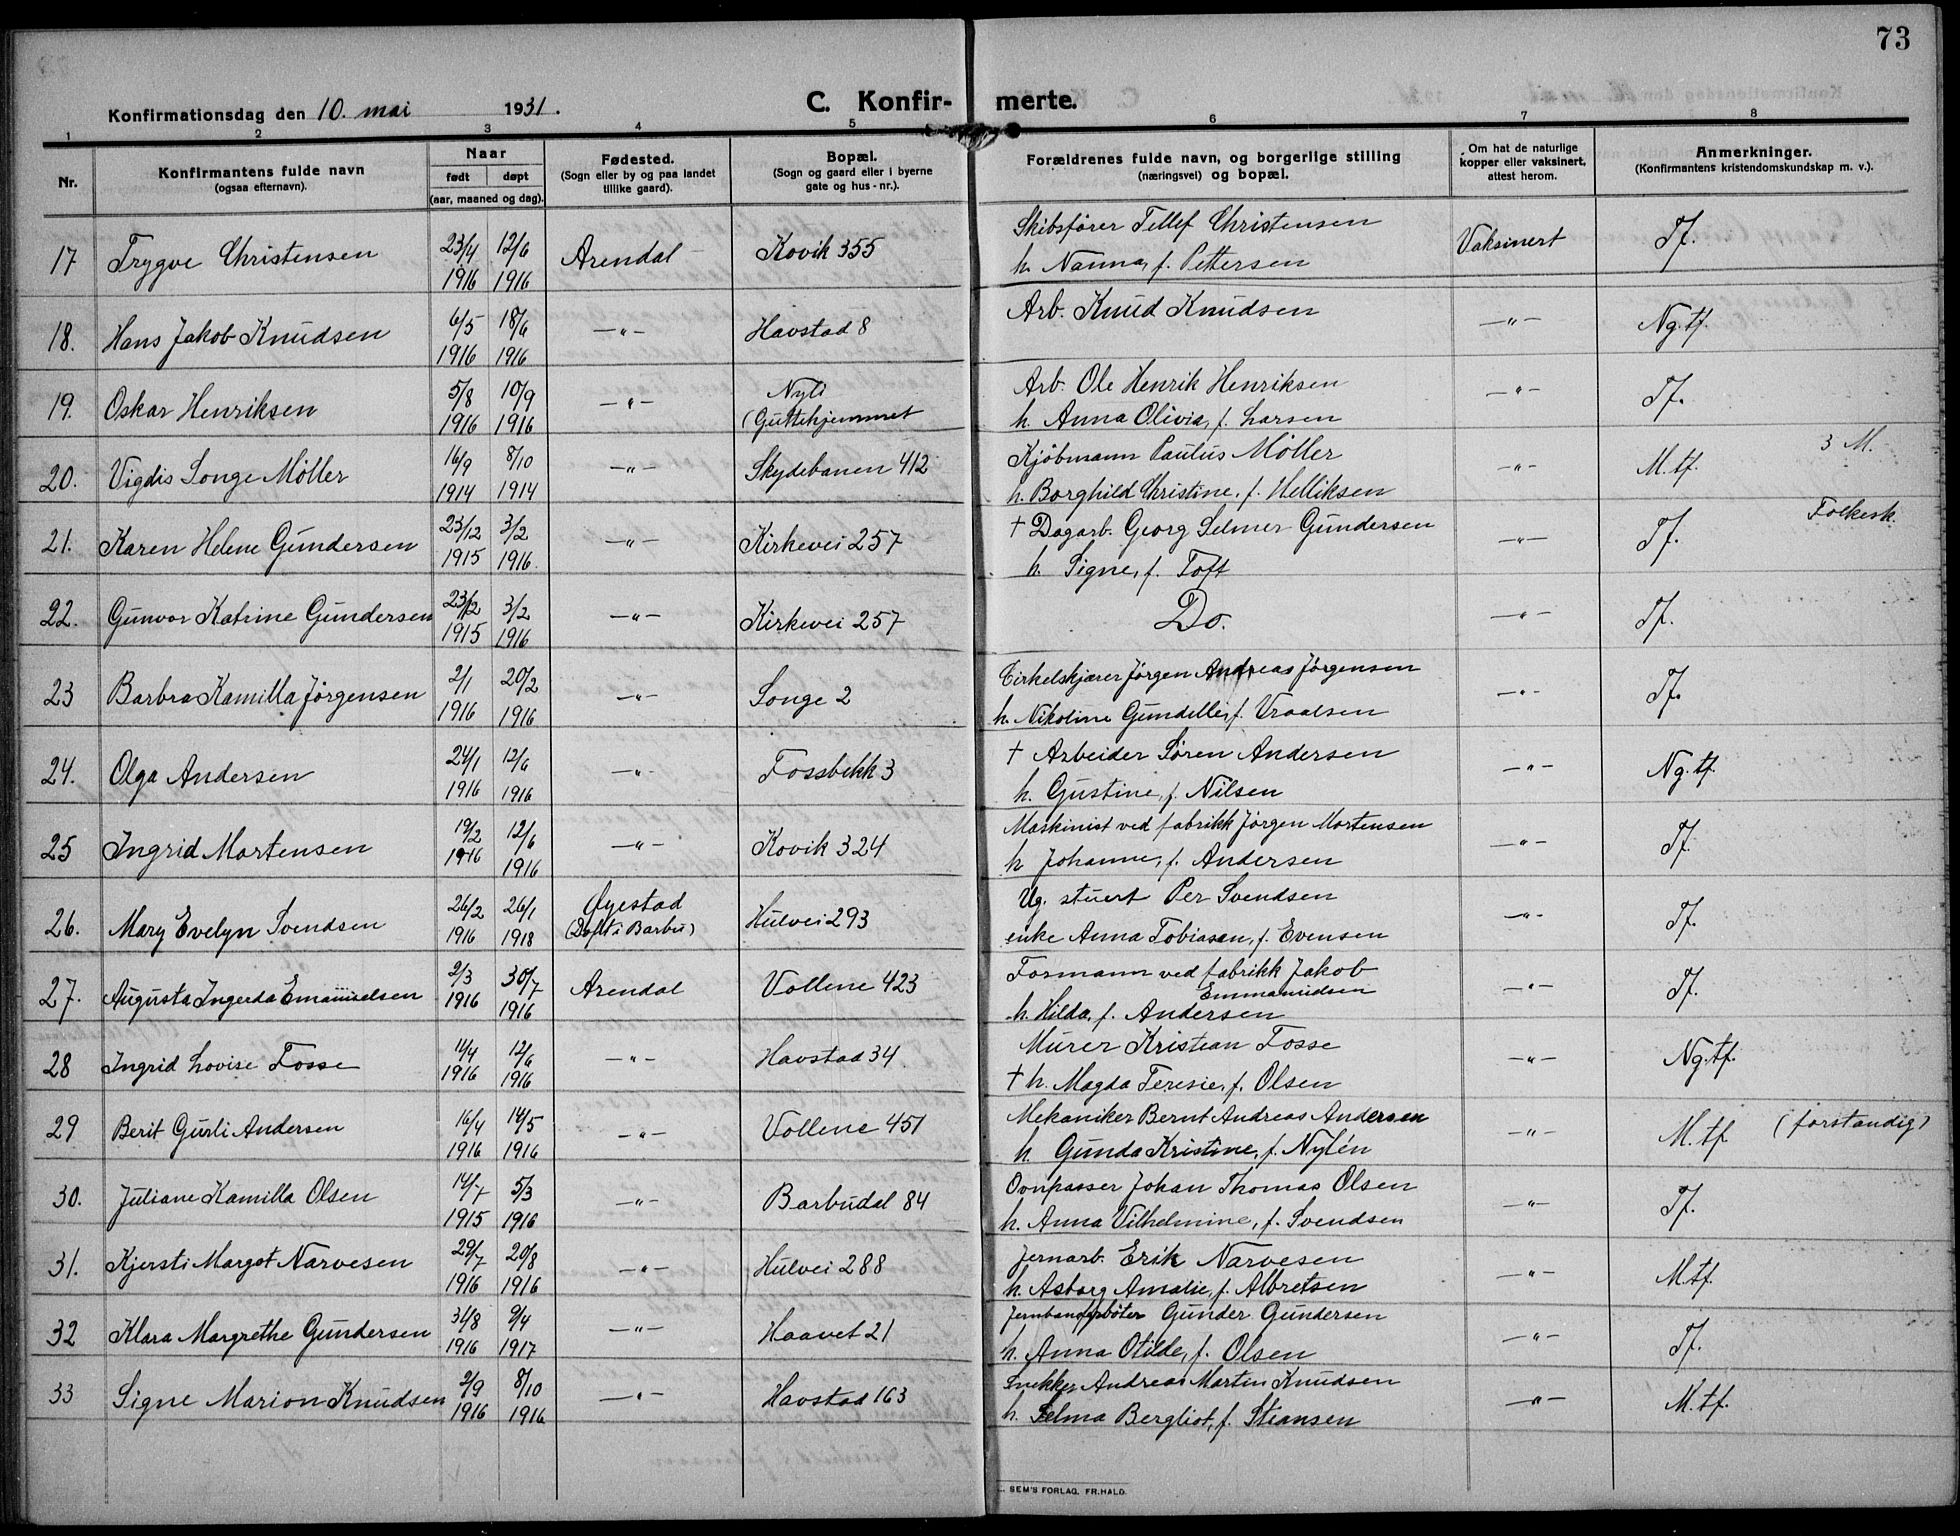 73
Konfirmationsdag den 10. mai 1931.
C. Konfir- merte.
1 2 3 4 5 6 7 8
Nr.
Konfirmantens fulde navn
(ogsaa efternavn).
Naar
født døpt
(aar, maaned og dag).
Fødested.
(Sogn eller by og paa landet
tillike gaard).
Bopæl.
(Sogn og gaard eller i byerne
gate og hus - nr.).
Forældrenes fulde navn, og borgerlige stilling
(næringsvei) og bopæl.
Om hat de naturlige
kopper eller vaksinert,
attest herom.
Anmerkninger.
(Konfirmantens kristendomskundskap m. v.).
17 Trygve Christensen 23/4 1916 12/6 1916 Arendal Kovik 355 Skibsfører Tellef Christensen Vaksinert Tf.
h. Nanna, f. Pettersen
18. Hans Jakob Knudsen 6/5 1916 18/6 1916 —"— Havstad 8 Arb. Knud Knudsen —"— Ng.tf.
19. Oskar Henriksen 5/8 1916 10/9 1916 —"— Nyli (Guttehjemmet Arb. Ole Henrik Henriksen —"— Tf.
h. Anna Olivia, f. Larsen
20. Vigdis Songe Møller 16/9 1914 8/10 1914 —"— Skydebanen 412 Kjøbmann Paulus Møller —"— M.tf. 3 M.
h. Borghild Christine, f. Helliksen
21. Karen Helene Gundersen 23/12 1915 3/2 1916. —"— Kirkevei 257 † Dagarb. Georg Selmer Gundersen —"— Tf. Folkesk.
h. Signe, f. Toft
22. Gunvor Katrine Gundersen 23/12 1915 3/2 1916 —"— Kirkevei 257 Do. —"— Tf.
23 Barbra Kamilla Jørgensen 2/1 1916 20/2 1916 —"— Songe 2 Cirkelskjærer Jørgen Andreas Jørgensen —"— Tf.
h. Nikoline Gundelle, f. Vraalsen
24. Olga Andersen 24/1 1916 12/6 1916 —"— Fossbekk 3 † Arbeider Søren Andersen —"— Ng.tf.
h. Gustine, f. Nilsen
25 Ingrid Mortensen 19/2 1916 12/6 1916 —"— Kovik 324 Maskinist ved fabrikk Jørgen Mortensen —"— Tf.
h Johanne, f. Andersen
26. Mary Evelyn Svendsen 26/2 1916 26/1 1918 Øyestad (Døpt i Barbu) Hulvei 293 Ug. stuert Per Svendsen —"— Tf.
enke Anna Tobiasan, f. Evensen
27. Augusta Ingerda Emanuelsen 2/3 1916 30/7 1916 Arendal Vollene 423 Formann ved fabrikk Jakob —"— Tf.
Emmanuelsen
h. Hilda, f. Andersen
28 Ingrid Lovise Fosse 11/4 1916 12/6 1916 —"— Havstad 34 Murer Kristian Fosse —"— Ng.tf.
† h. Magda Teresie, f. Olsen
29 Berit Gurli Andersen 16/4 1916 14/5 1916 —"— Vollene 451 Mekaniker Bernt Andreas Andersen —"— M.tf (forstandig)
h. Gunda Kristine, f. Nylén
30. Juliane Kamilla Olsen 14/7 1915 5/3 1916 —"— Barbudal 84 Ovnpasser Johan Thomas Olsen —"— Tf.
h. Anna Vilhelmine, f. Svendsen
31. Kjersti Margot Narvesen 29/7 1916 20/8 1916 —"— Hulvei 288 Jernarb. Erik Narvesen —"— M.tf.
h. Asborg Amalie, f. Albretsen
32 Klara Margrethe Gundersen 31/8 1916 9/4 1917 —"— Haavet 21 Gunder Gundersen —"— Tf.
h. Anna Otilde, f. Olsen
33 Signe Marion Knudsen 2/9 1916 8/10 1916 —"— Havstad 163 Snekker Andreas Martin Knudsen —"— M.tf.
h. Selma Bergliot, f. Stiansen
SEM'S FORLAG, FR.HALD.